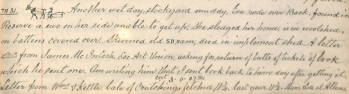 Th 31. Another wet day, stockyard muddy, low rode over Back, found in
Reserve a ewe on her side unable to get up, she sledged her home in woolshed,
on battens covered over. Skinned old SD ram, died in implement shed. A letter
from James McIntosh, Sec Art Union, asking for return of butts of tickets of book
which he sent me. Am writing him that I sent book back to him day after getting it.
Letter from & Kettle. Sale of Crutchings fetched last year